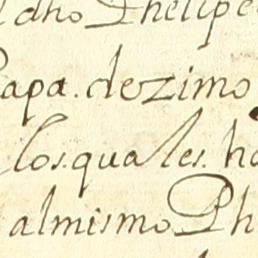 dho Phelipe
apa. dezimo
los. quales. ha
al mismo Ph